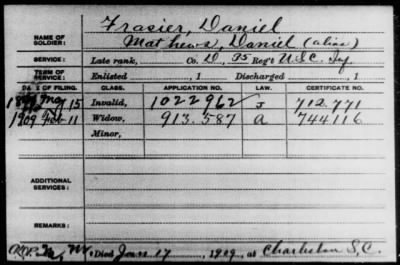 Frasier, Daniel
NAME OF SOLDIER: Mathews, Daniel (alias)
SERVICE: Late rank, Co. D, 35 Reg't U.S.C. Inf
TERM OF SERVICE: Enlisted , 1 Discharged , 1
DATE OF FILING. CLASS. APPLICATION NO. LAW. CERTIFICATE NO.
15 Invalid, 1022962 J 712.771
1909 Feb 11 Widow, 913.587 A 744116
Minor,
ADDITIONAL SERVICES:
REMARKS:
Died 17, 1909, at Charleston S.C.